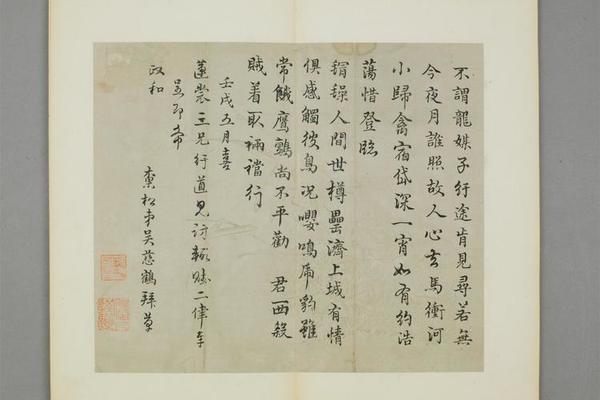 不謂龍媒子行途肯見尋若無
今夜月誰照故人心玄馬衝河
小歸禽宿岱深一宵如有約浩
蕩惜登臨
稍稍人間世樽罍濟上城有情
惧感觸彼鳥况嚶鳴虎豹雖
常餓鷹鸇尚不平勸 君西殺
賊着取裲襠行
壬戌五月喜
蓮裳三兄行道見訪輒賦二律奉
呈即希
政和
棄松弟吳慈鶴拜草